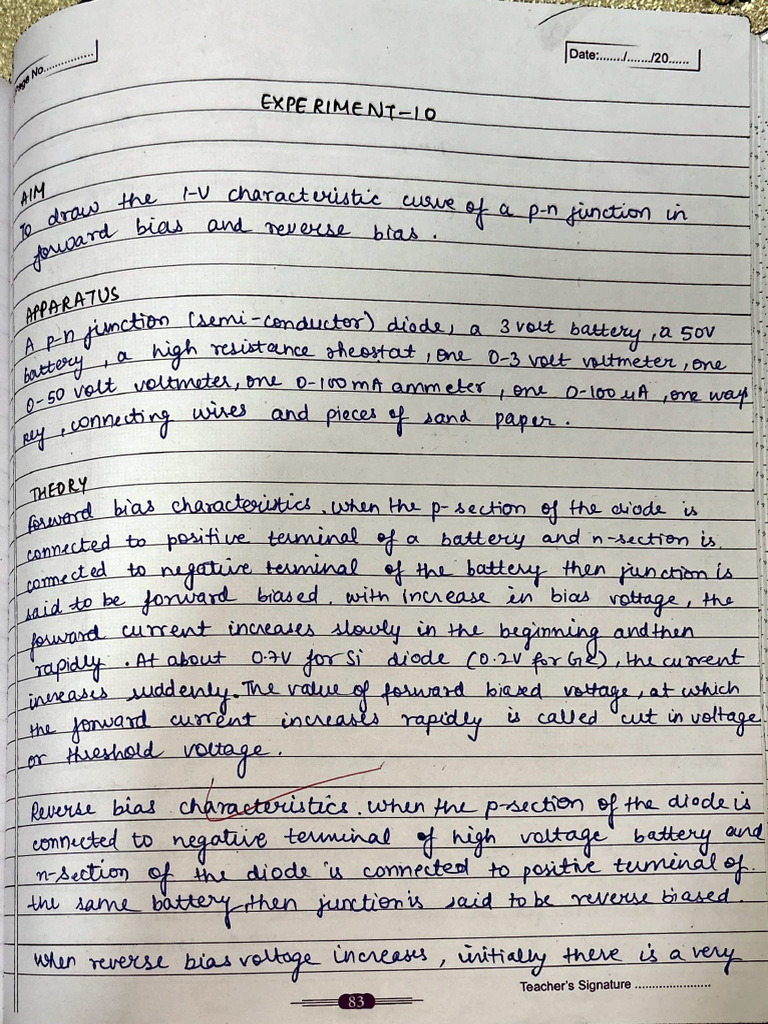 Page No..............
Date:......./......./20......
EXPERIMENT-10
AIM
To draw the I-V characteristic curve of a p-n junction in
forward bias and reverse bias.
APPARATUS
A p-n junction (semi-conductor) diode, a 3 volt battery, a 50V
battery, a high resistance rheostat, one 0-3 volt voltmeter, one
0-50 volt voltmeter, one 0-100 mA ammeter, one 0-100 μA, one way
key, connecting wires and pieces of sand paper.
THEORY
Forward bias characteristics. When the p-section of the diode is
connected to positive terminal of a battery and n-section is
connected to negative terminal of the battery then junction is
said to be forward biased. With increase in bias voltage, the
forward current increases slowly in the beginning and then
rapidly. At about 0.7V for Si diode (0.2V for Ge), the current
increases suddenly. The value of forward biased voltage, at which
the forward current increases rapidly is called cut in voltage
or threshold voltage.
Reverse bias characteristics. When the p-section of the diode is
connected to negative terminal of high voltage battery and
n-section of the diode is connected to positive terminal of
the same battery, then junction is said to be reverse biased.
When reverse bias voltage increases, initially there is a very
Teacher's Signature ........................
83